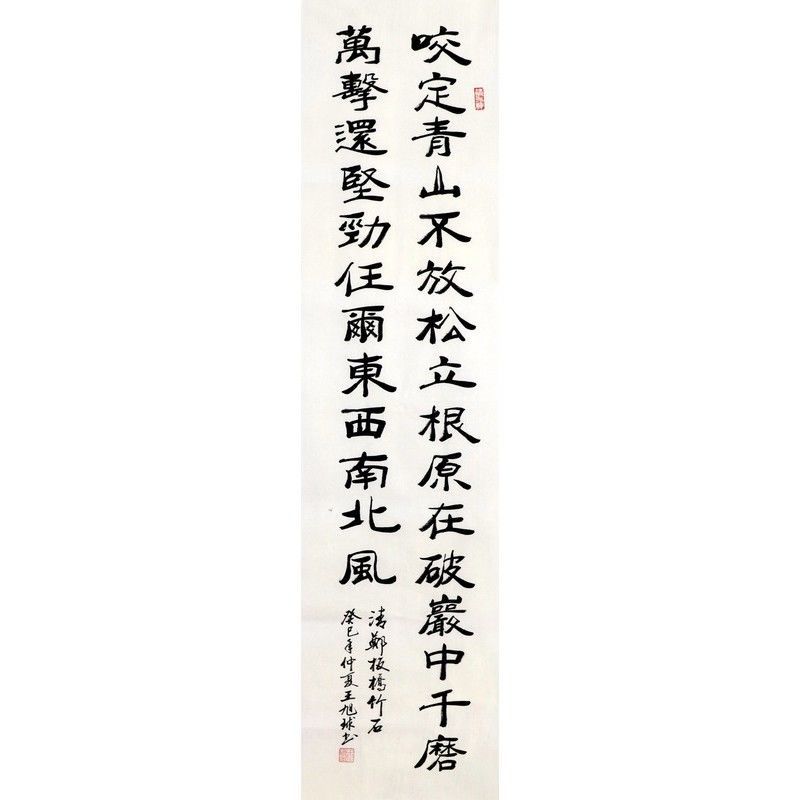 咬定青山不放松立根原在破巖中千磨
萬擊還堅勁任爾東西南北風
清鄭板橋竹石
癸巳年仲夏王旭球书